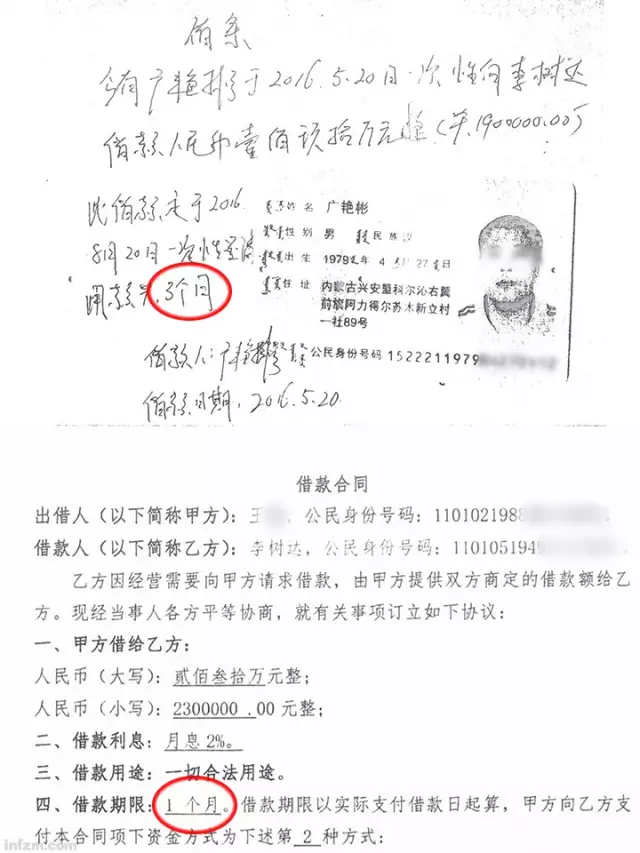 借条
今有广艳彬于2016.5.20日一次性向李树达
借款人民币壹佰玖拾万元整(¥.1900000.00)
此借款定于2016.
8月20日一次性还清
用款为.3个月
借款人:广艳彬
借款日期,2016.5.20
姓名 广艳彬
性别 男 民族
出生 1979年4月27日
住址 内蒙古兴安盟科尔沁右翼
前旗阿力得尔苏木新立村
一社89号
公民身份号码 1522211979
借款合同
出借人(以下简称甲方):王 ,公民身份号码:1101021988
借款人(以下简称乙方):李树达,公民身份号码:1101051949
乙方因经营需要向甲方请求借款,由甲方提供双方商定的借款额给乙
方。现经当事人各方平等协商,就有关事项订立如下协议:
一、甲方借给乙方:
人民币(大写):贰佰叁拾万元整;
人民币(小写):2300000 .00 元整;
二、借款利息:月息2%。
三、借款用途:一切合法用途。
四、借款期限:1 个月。借款期限以实际支付借款日起算,甲方向乙方支
付本合同项下资金方式为下述第 2 种方式:
infzm.com